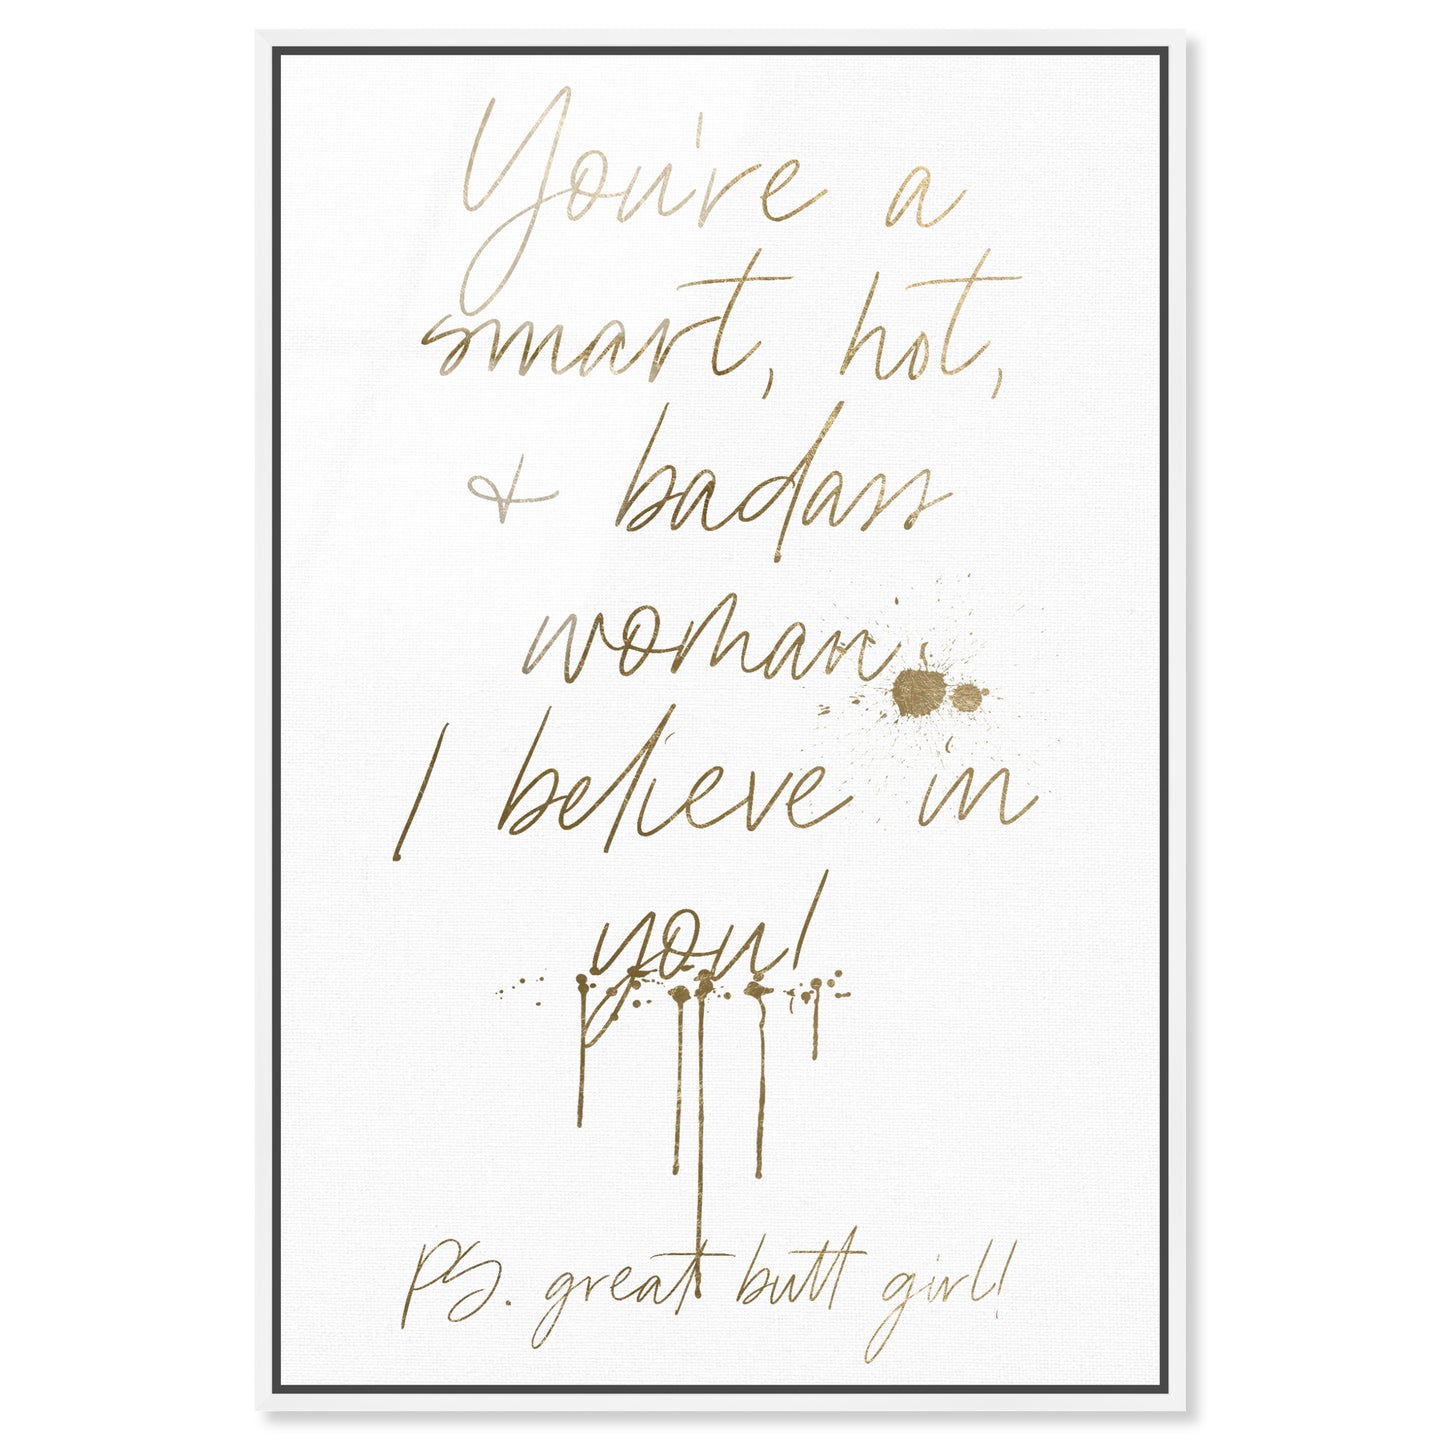 You're a
smart, hot,
& badass
woman.
I believe in
you!
PS. great butt girl!